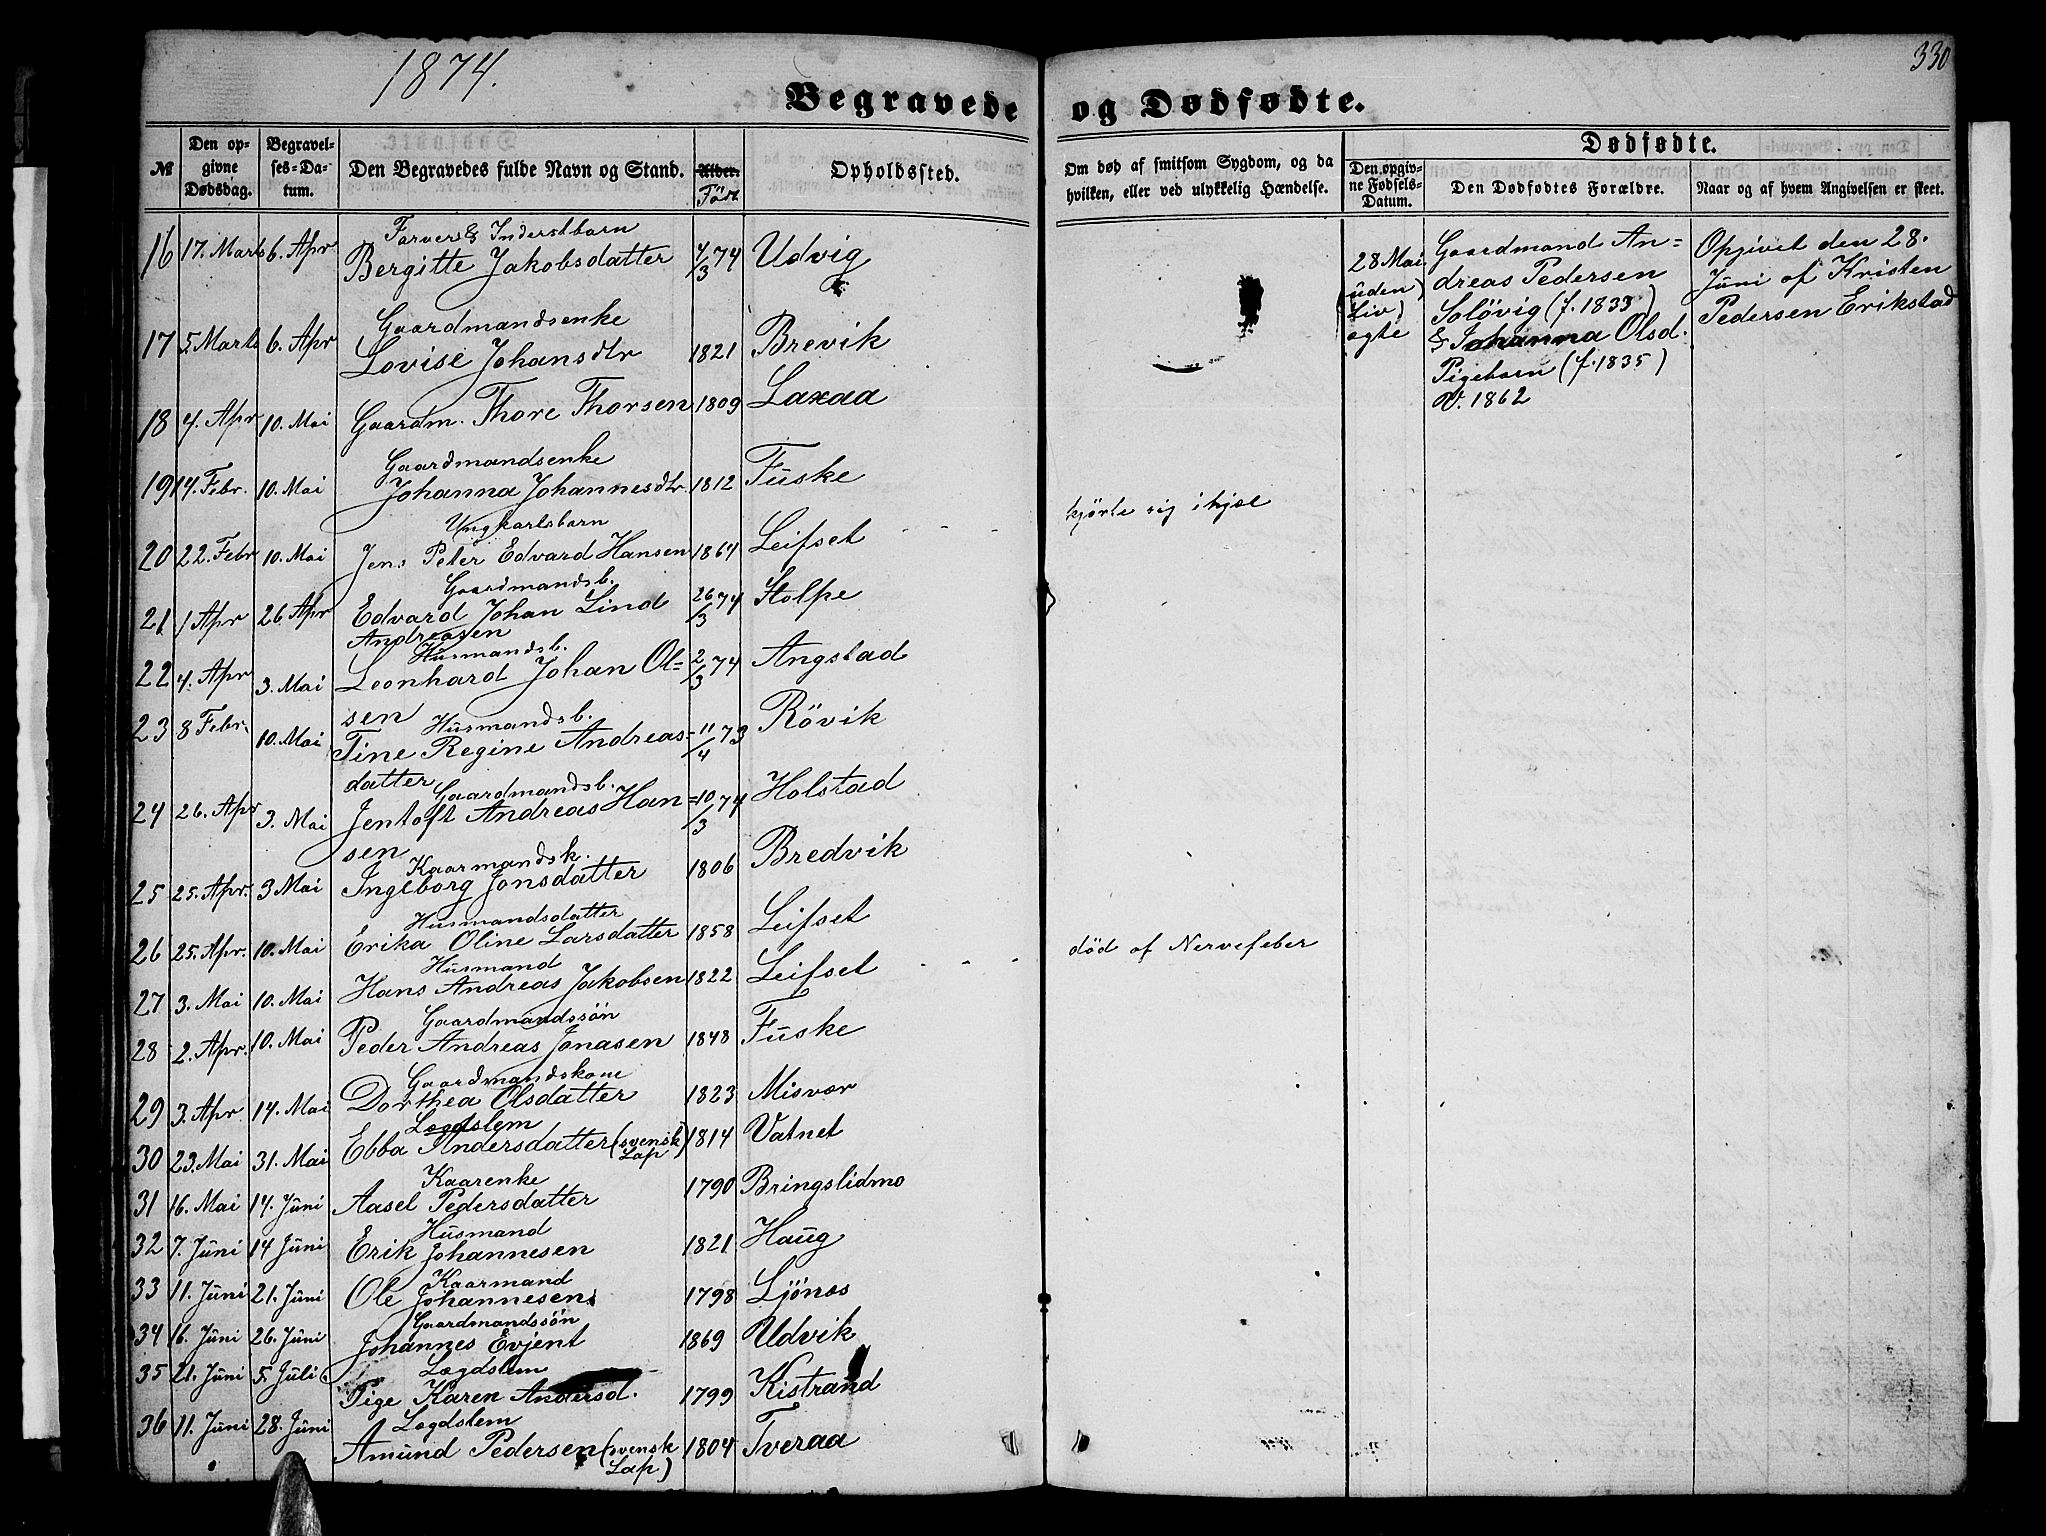 1874.
330
Begravede og Dødfødte.
№
Den opgivne Dødsdag.
Begravelses-Datum.
Den Begravedes fulde Navn og Stand.
Alder.
Født
Opholdssted.
Om død af smitsom Sygdom, og da hvilken, eller ved ulykkelig Hændelse.
Dødfødte.
Den opgivne Fødsels-Datum.
Den Dødfødtes Forældre.
Naar og af hvem Angivelsen er skeet.
Farvers & Inderstbarn
16 17. Marts 6. Apr Bergitte Jakobsdatter 4/3 74 Udvig
Gaardmandsenke
17 5. Marts 6. Apr Lovise Johansdtr 1821 Brevik
18 4. Apr 10. Mai Gaardm. Thore Thorsen 1809 Laxaa
Gaardmandsenke
19 14. Febr. 10. Mai Johanna Johannesdtr 1812 Fuske
Ungkarlsbarn
20 22. Febr 10. Mai Jens Peter Edvard Hansen 1864 Leifset - - kjørte sig ihjel
Gaardmandsb.
21 1 Apr 26 Apr Edvard Johan Lind 26/3 74 Stolpe
Andreasen
Husmandsb.
22 4. Apr 3. Mai Leonhard Johan Ol= 2/3 74 Angstad
sen
Husmandsb.
23 8 Febr. 10. Mai Tine Regine Andreas= 11/4 73 Rövik
datter
Gaardmandsb.
24 26. Apr 3. Mai Jentoft Andreas Han= 10/3 74 Holstad
sen
Kaarmandsk.
25 25. Apr. 3 Mai Ingeborg Jonsdatter 1806 Bredvik
Husmandsdatter
26 25. Apr. 10. Mai Erika Oline Larsdatter 1858 Leifset
Husmand
27 3. Mai 10. Mai Hans Andreas Jakobsen 1822 Leifset - - - död af Nervefeber
Gaardmandssön
28 2. Apr. 10. Mai Peder Andreas Jonasen 1848 Fuske
Gaardmandskone
29 3. Apr 14. Mai Dorthea Olsdatter 1823 Misvær
Lægdslem
30 23. Mai 31. Mai Ebba Andersdatter (svensk Lap) 1814 Vatnet
Kaarenke
31 16. Mai 14. Juni Aasel Pedersdatter 1790 Bringslidmo
Husmand
32 7. Juni 14 Juni Erik Johannesen 1821 Haug
Kaarmand
33 11. Juni 21. Juni Ole Johannesen 1798 Ljönes
Gaardmandssön
34 16. Juni 26. Juni Johannes Evjent 1869 Udvik
Lægdslem
35 21. Juni 5. Juli Pige Karen Andersd. 1799 Kistrand
Lægdslem
36 11. Juni 28. Juni Amund Pedersen (svensk Lap) 1804 Tveraa
28 Mai
(uden
Liv)
egte
Gaardmand An=
dreas Pedersen
Solövig (f. 1833)
& Johanna Olsd.
Pigebarn (f. 1835)
V. 1862
Opgivet den 28.
Juni af Kristen
Pedersen Erikstad